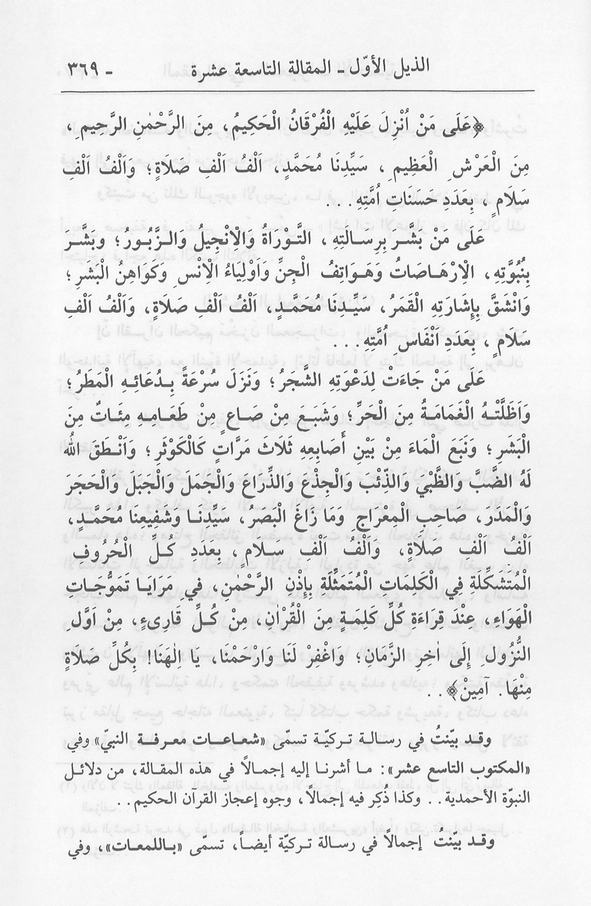 الذيل الأوّل - المقالة التاسعة عشرة - ٣٦٩
﴿عَلَى مَنْ اُنْزِلَ عَلَيْهِ الْفُرْقَانُ الْحَكِيمُ، مِنَ الرَّحْمٰنِ الرَّحِيمِ،
مِنَ الْعَرْشِ الْعَظِيمِ، سَيِّدِنَا مُحَمَّدٍ، اَلْفُ اَلْفِ صَلَاةٍ؛ وَاَلْفُ اَلْفِ
سَلَامٍ، بِعَدَدِ حَسَنَاتِ اُمَّتِهِ...
عَلَى مَنْ بَشَّرَ بِرِسَالَتِهِ، التَّوْرَاةُ وَالْاِنْجِيلُ وَالزَّبُورُ؛ وَبَشَّرَ
بِنُبُوَّتِهِ، الْاِرْهَاصَاتُ وَهَوَاتِفُ الْجِنِّ وَاَوْلِيَاءُ الْاِنْسِ وَكَوَاهِنُ الْبَشَرِ؛
وَانْشَقَّ بِاِشَارَتِهِ الْقَمَرُ، سَيِّدِنَا مُحَمَّدٍ، اَلْفُ اَلْفِ صَلَاةٍ، وَاَلْفُ اَلْفِ
سَلَامٍ، بِعَدَدِ اَنْفَاسِ اُمَّتِهِ...
عَلَى مَنْ جَاءَتْ لِدَعْوَتِهِ الشَّجَرُ؛ وَنَزَلَ سُرْعَةً بِدُعَائِهِ الْمَطَرُ؛
وَاَظَلَّتْهُ الْغَمَامَةُ مِنَ الْحَرِّ؛ وَشَبَعَ مِنْ صَاعٍ مِنْ طَعَامِهِ مِئَاتٌ مِنَ
الْبَشَرِ؛ وَنَبَعَ الْمَاءُ مِنْ بَيْنِ أَصَابِعِهِ ثَلَاثَ مَرَّاتٍ كَالْكَوْثَرِ؛ وَاَنْطَقَ اللهُ
لَهُ الضَّبَّ وَالظَّبْيَ وَالذِّئْبَ وَالْجِذْعَ وَالذِّرَاعَ وَالْجَمَلَ وَالْجَبَلَ وَالْحَجَرَ
وَالْمَدَرَ، صَاحِبِ الْمِعْرَاجِ وَمَا زَاغَ الْبَصَرُ، سَيِّدِنَا وَشَفِيعِنَا مُحَمَّدٍ،
اَلْفُ اَلْفِ صَلَاةٍ، وَاَلْفُ اَلْفِ سَلَامٍ، بِعَدَدِ كُلِّ الْحُرُوفِ
الْمُتَشَكِّلَةِ فِي الْكَلِمَاتِ الْمُتَمَثِّلَةِ بِاِذْنِ الرَّحْمٰنِ، فِي مَرَايَا تَمَوُّجَاتِ
الْهَوَاءِ، عِنْدَ قِرَاءَةِ كُلِّ كَلِمَةٍ مِنَ الْقُرْاٰنِ، مِنْ كُلِّ قَارِىءٍ، مِنْ اَوَّلِ
النُّزُولِ اِلَى اٰخِرِ الزَّمَانِ؛ وَاغْفِرْ لَنَا وَارْحَمْنَا، يَا اِلٰهَنَا! بِكُلِّ صَلَاةٍ
مِنْهَا. آمِينْ﴾..
وقد بيّنتُ في رسالة تركيّة تسمّى «شعاعات معرفة النبيّ» وفي
«المكتوب التاسع عشر»: ما أشرنا إليه إجمالاً في هذه المقالة، من دلائل
النبوّة الأحمدية.. وكذا ذُكِر فيه إجمالاً، وجوه إعجاز القرآن الحكيم..
وقد بيّنتُ إجمالاً في رسالة تركيّة أيضاً، تسمّى «باللمعات»، وفي